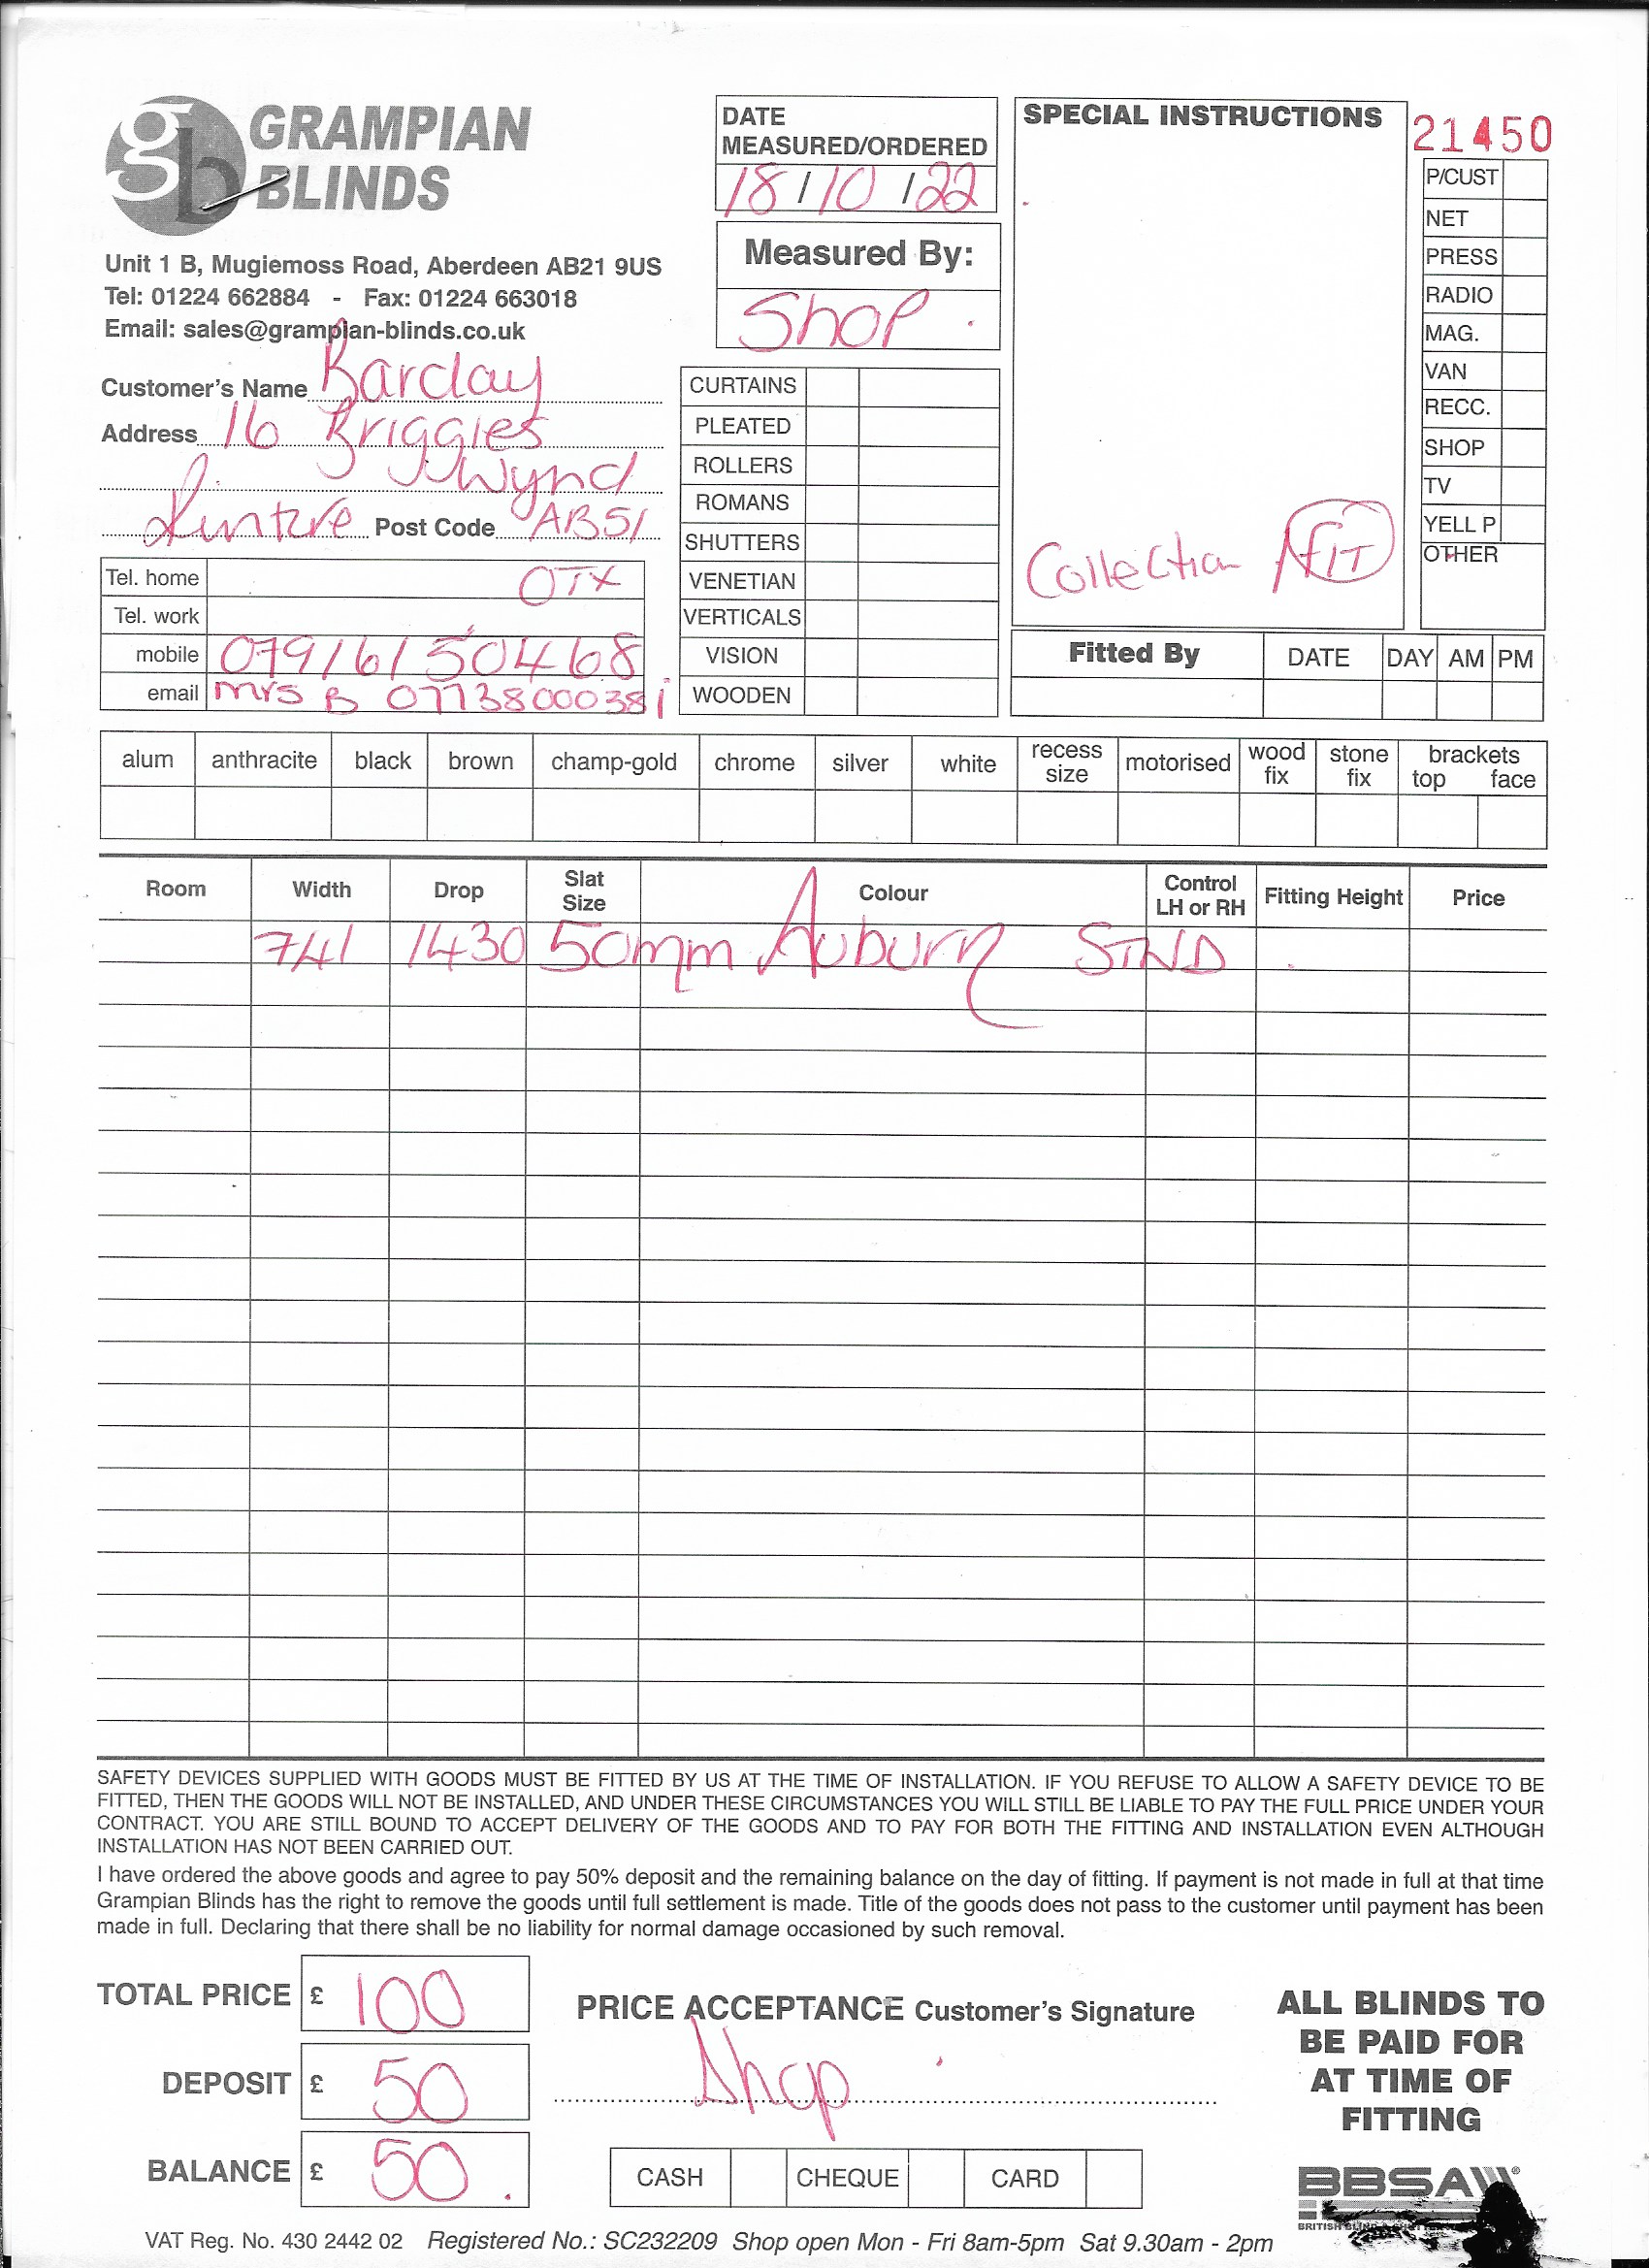 GRAMPIAN
BLINDS
Unit 1 B, Mugiemoss Road, Aberdeen AB21 9US
Tel: 01224 662884 - Fax: 01224 663018
Email: sales@grampian-blinds.co.uk
Customer's Name Barclay
Address 16 Briggies
Wynd
Kintore Post Code AB51
Tel. home OTX
Tel. work
mobile 07916150468
email Mrs B 07738000381
DATE
MEASURED/ORDERED
18/10/22
Measured By:
Shop
CURTAINS
PLEATED
ROLLERS
ROMANS
SHUTTERS
VENETIAN
VERTICALS
VISION
WOODEN
SPECIAL INSTRUCTIONS
Collection FIT
21450
P/CUST
NET
PRESS
RADIO
MAG.
VAN
RECC.
SHOP
TV
YELL P
OTHER
Fitted By DATE DAY AM PM
alum anthracite black brown champ-gold chrome silver white recess size motorised wood fix stone fix brackets top face
Room Width Drop Slat Size Colour Control LH or RH Fitting Height Price
741 1430 50mm Auburn STND
SAFETY DEVICES SUPPLIED WITH GOODS MUST BE FITTED BY US AT THE TIME OF INSTALLATION. IF YOU REFUSE TO ALLOW A SAFETY DEVICE TO BE
FITTED, THEN THE GOODS WILL NOT BE INSTALLED, AND UNDER THESE CIRCUMSTANCES YOU WILL STILL BE LIABLE TO PAY THE FULL PRICE UNDER YOUR
CONTRACT. YOU ARE STILL BOUND TO ACCEPT DELIVERY OF THE GOODS AND TO PAY FOR BOTH THE FITTING AND INSTALLATION EVEN ALTHOUGH
INSTALLATION HAS NOT BEEN CARRIED OUT.
I have ordered the above goods and agree to pay 50% deposit and the remaining balance on the day of fitting. If payment is not made in full at that time
Grampian Blinds has the right to remove the goods until full settlement is made. Title of the goods does not pass to the customer until payment has been
made in full. Declaring that there shall be no liability for normal damage occasioned by such removal.
TOTAL PRICE £ 100
DEPOSIT £ 50
BALANCE £ 50
PRICE ACCEPTANCE Customer's Signature
Shop
CASH CHEQUE CARD
ALL BLINDS TO
BE PAID FOR
AT TIME OF
FITTING
BBSA
BRITISH
VAT Reg. No. 430 2442 02 Registered No.: SC232209 Shop open Mon - Fri 8am-5pm Sat 9.30am - 2pm